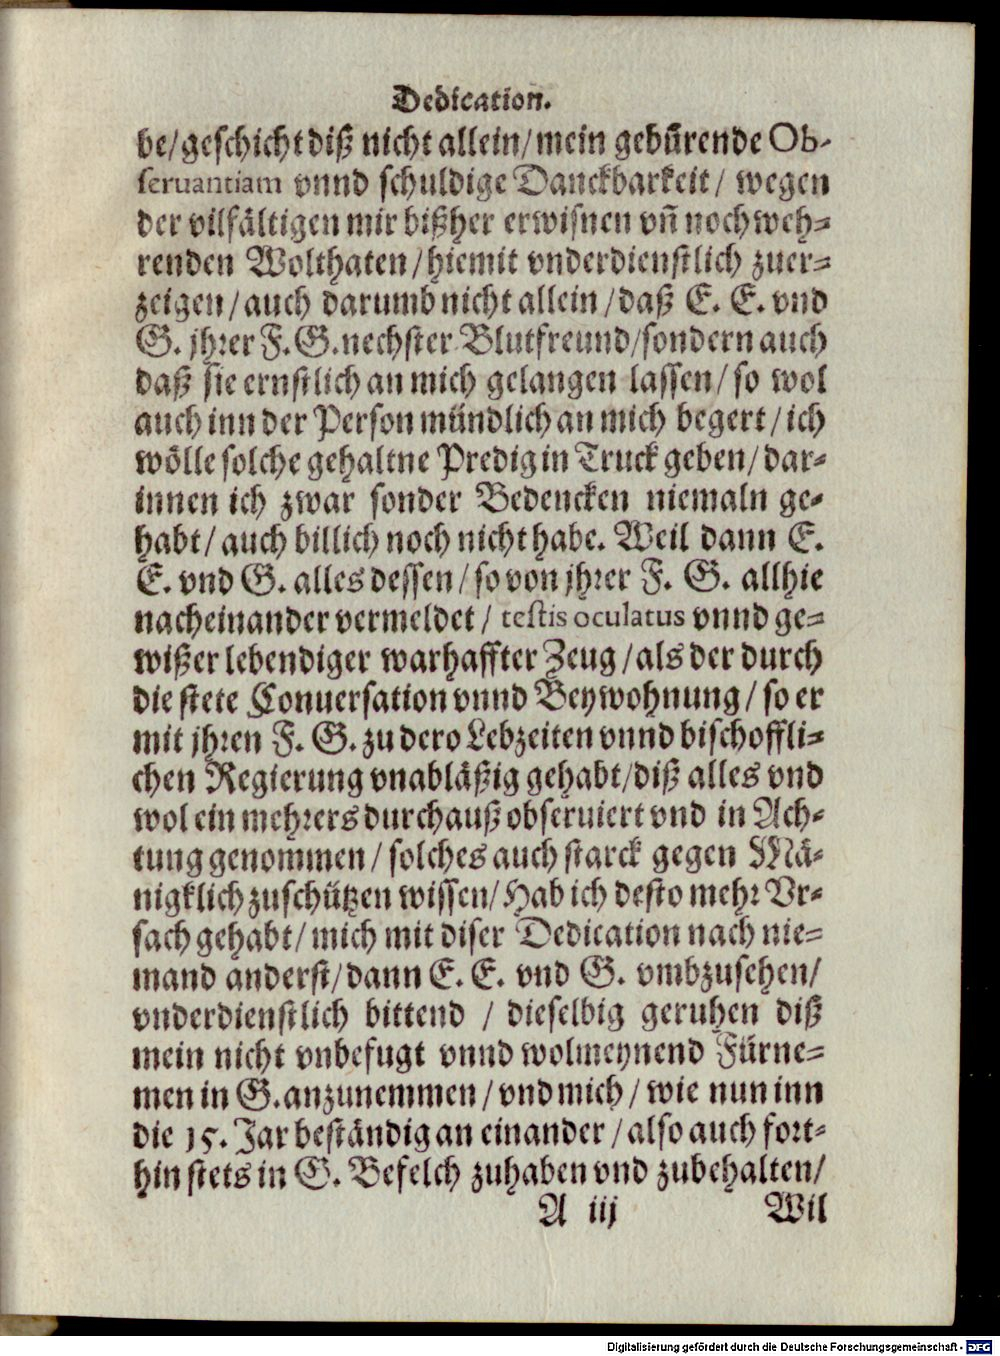 Dedication.
be/geschicht diß nicht allein/mein gebürende Ob-
seruantiam vnnd schuldige Danckbarkeit/ wegen
der vilfältigen mir bißher erwisnen vñ noch weh-
renden Wolthaten/hiemit vnderdienstlich zuer-
zeigen/auch darumb nicht allein/daß E. E. vnd
G. jhrer F. G. nechster Blutfreund/sondern auch
daß sie ernstlich an mich gelangen lassen/ so wol
auch inn der Person mündlich an mich begert/ich
wölle solche gehaltne Predig in Truck geben/dar-
innen ich zwar sonder Bedencken niemaln ge-
habt/auch billich noch nicht habe. Weil dann E.
E. vnd G. alles dessen/so von jhrer F. G. allhie
nacheinander vermeldet/ testis oculatus vnnd ge-
wißer lebendiger warhaffter Zeug/als der durch
die stete Conuersation vnnd Beywohnung/ so er
mit jhren F. G. zu dero Lebzeiten vnnd bischoffli-
chen Regierung vnabläßig gehabt/diß alles vnd
wol ein mehrers durchauß obseruiert vnd in Ach-
tung genommen/solches auch starck gegen Mä-
nigklich zuschützen wissen/Hab ich desto mehr Vr-
sach gehabt/mich mit diser Dedication nach nie-
mand anderst/dann E. E. vnd G. vmbzusehen/
vnderdienstlich bittend / dieselbig geruhen diß
mein nicht vnbefugt vnnd wolmeynend Fürne-
men in G. anzunemmen/vnd mich/wie nun inn
die 15. Jar beständig an einander/also auch fort-
hin stets in G. Befelch zuhaben vnd zubehalten/
A iij Wil
Digitalisierung gefördert durch die Deutsche Forschungsgemeinschaft - DFG